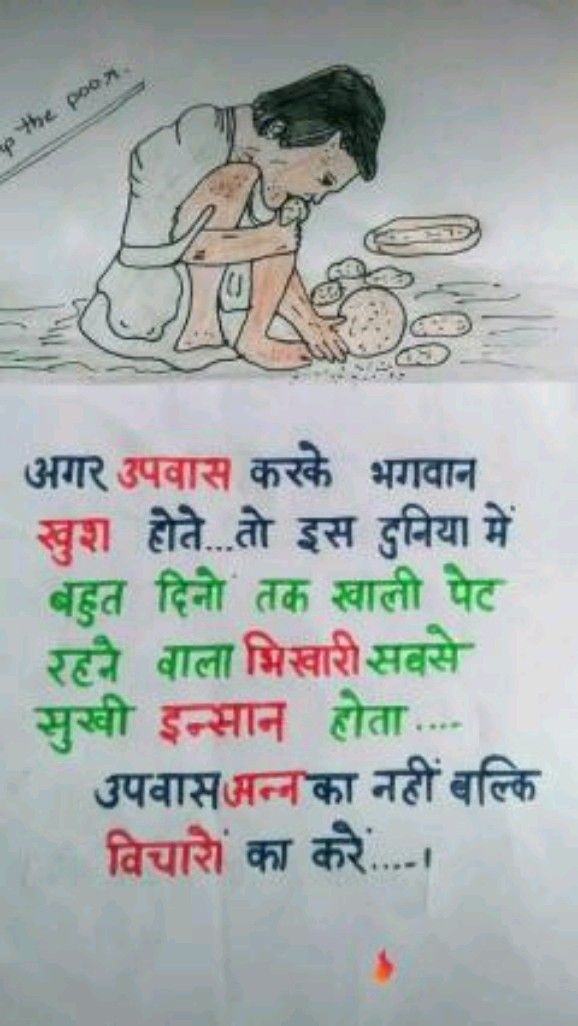 the poor.
अगर उपवास करके भगवान
खुश होते...तो इस दुनिया में
बहुत दिनो तक खाली पेट
रहने वाला भिखारी सबसे
सुखी इन्सान होता ....
उपवास अन्न का नहीं बल्कि
विचारों का करें.....।